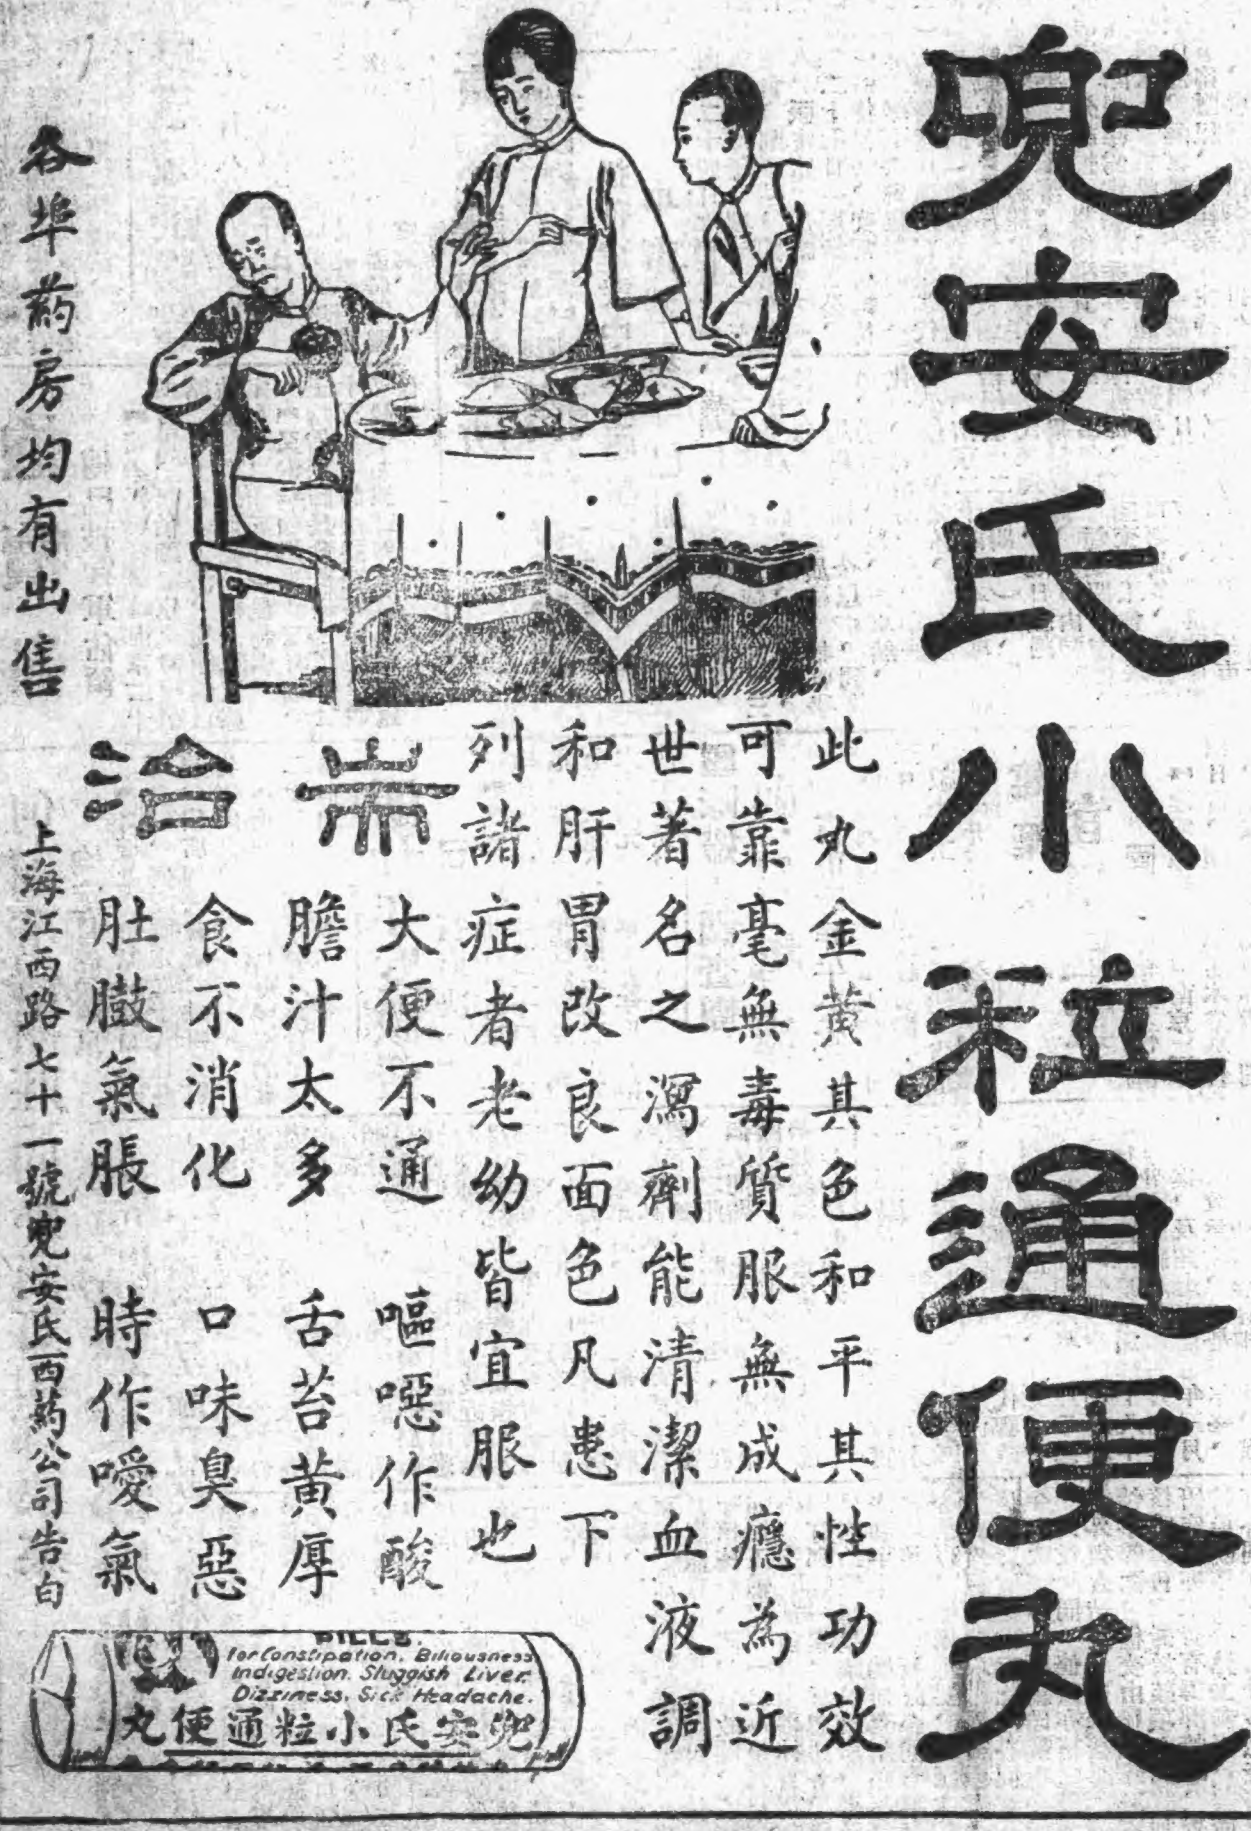 兜安氏小粒通便丸
此丸金黃其色和平其性功效
可靠毫無毒質服無成癮為近
世著名之瀉劑能清潔血液調
和肝胃改良面色凡患下
列諸症者老幼皆宜服也
崇治
大便不通 嘔噁作酸
膽汁太多 舌苔黃厚
食不消化 口味臭惡
肚臌氣脹 時作噯氣
各埠葯房均有出售
上海江西路七十一號兜安氏西葯公司告白
PILLS.
for Constipation, Biliousness
Indigestion, Sluggish Liver
Dizziness, Sick Headache.
兜安氏小粒通便丸